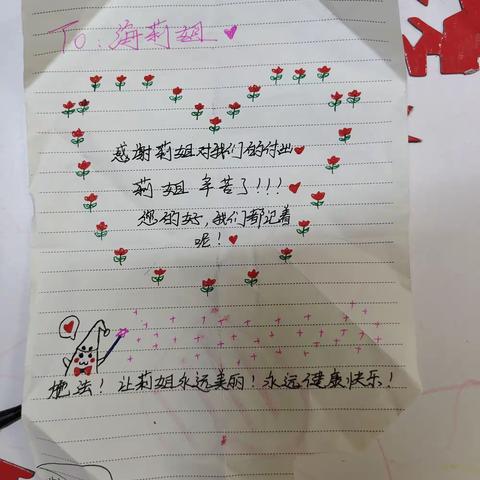 To：海莉姐
感谢莉姐对我们的付出
莉姐辛苦了!!!
您的好,我们都记着
呢!
施法!让莉姐永远美丽!永远健康快乐!